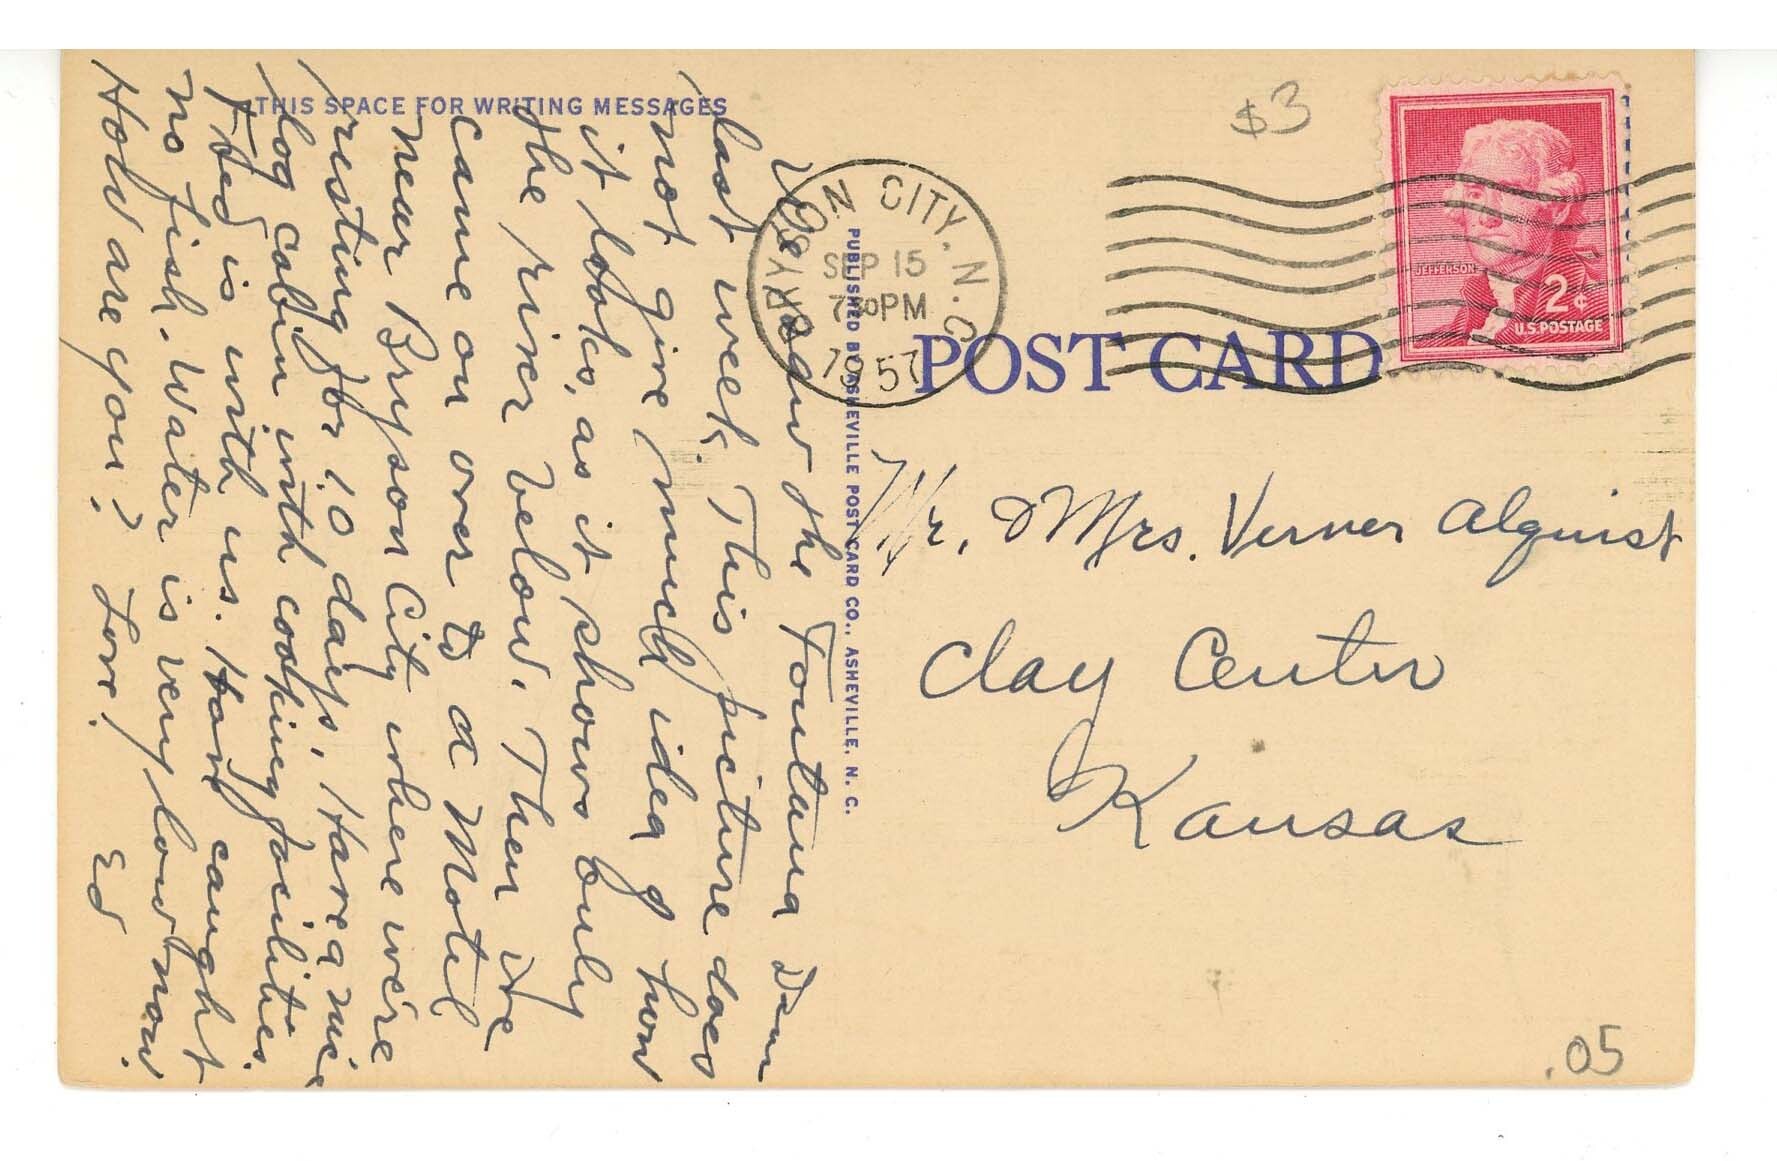 THIS SPACE FOR WRITING MESSAGES
We saw the Fontana Dam
last week. This picture does
not give much idea of how
it looks, as it shows only
the river below. Then we
came on over to a Motel
near Bryson City where we're
resting for 10 days. Have a nice
log cabin with cooking facilities.
Fred is with us. Have caught
no fish. Water is very low now.
How are you? Love, Ed
PUBLISHED BY ASHEVILLE POST CARD CO., ASHEVILLE, N. C.
BRYSON CITY, N.C.
SEP 15
730PM
1957
POST CARD
$3
JEFFERSON
2¢
U.S. POSTAGE
Mr. & Mrs. Verner Alquist
Clay Center
Kansas
.05